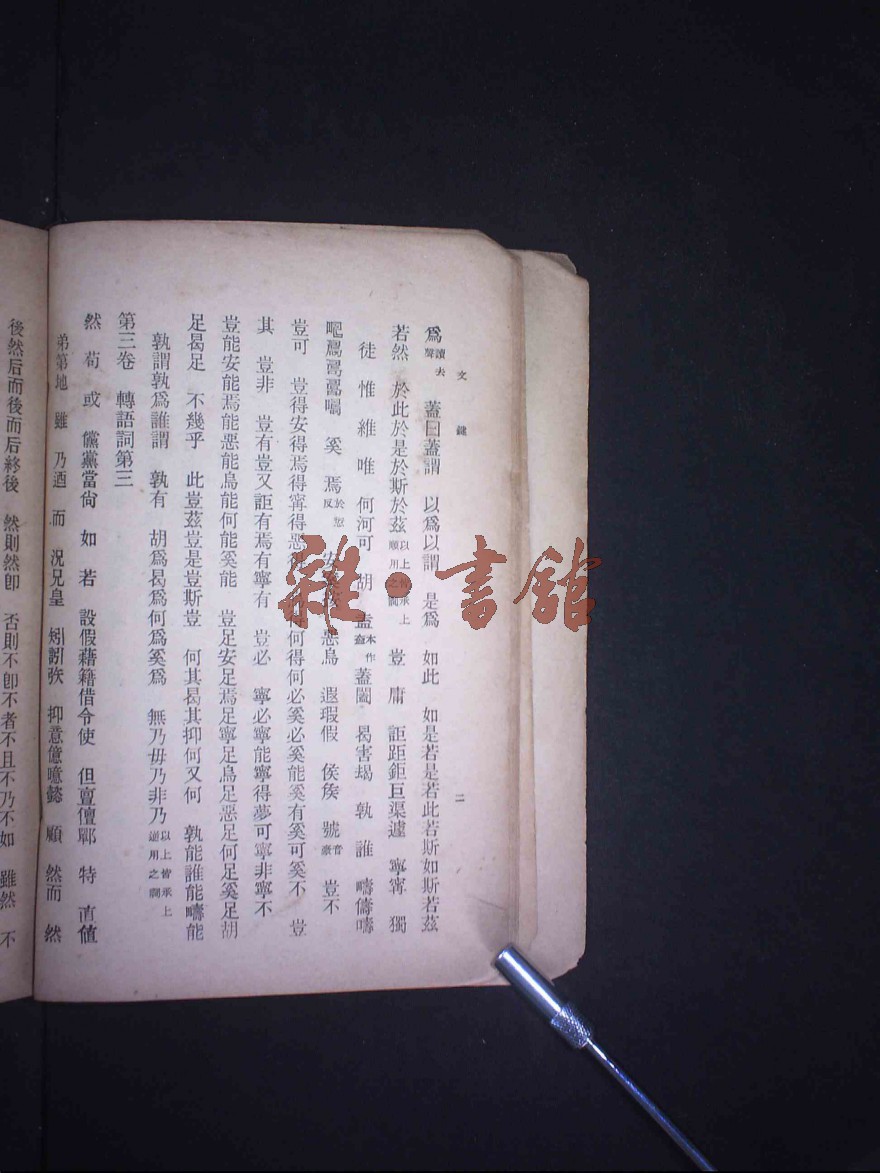 文鍵
二
爲讀去聲 蓋曰蓋謂 以爲以謂 是爲 如此 如是若是若此若斯如斯若茲
若然 於此於是於斯於茲以上皆承上順用之詞 豈 庸 詎距鉅巨渠遽 寧甯 獨
徒 惟 維 唯 何河可 胡 盍本作盇 蓋闔 曷害蝎 孰 誰 疇儔嚋
奚 焉於愆反 安 惡烏 遐瑕假 侯矦 號音豪 豈不
豈可 豈得安得焉得甯得惡得 何得何必奚必奚能奚有奚可奚不 豈
其 豈非 豈有豈又詎有焉有寧有 豈必 寧必寧能寧得夢可寧非寧不
豈能安能焉能惡能烏能何能奚能 豈足安足焉足寧足烏足惡足何足奚足胡
足曷足 不幾乎 此豈茲豈是豈斯豈 何其曷其抑何又何 孰能誰能疇能
孰謂孰爲誰謂 孰有 胡爲曷爲何爲奚爲 無乃毋乃非乃以上皆承上逆用之詞
第三卷 轉語詞第三
然 苟 或 儻黨當尙 如 若 設假藉籍借令使 但亶儃鄲 特 直値
弟第地 雖 乃迺 而 況兄皇 矧訠弞 抑意億噫懿 顧 然而 然
後然后而後而后終後 然則然卽 否則不卽不者不且不乃不如 雖然 不
雜·書館